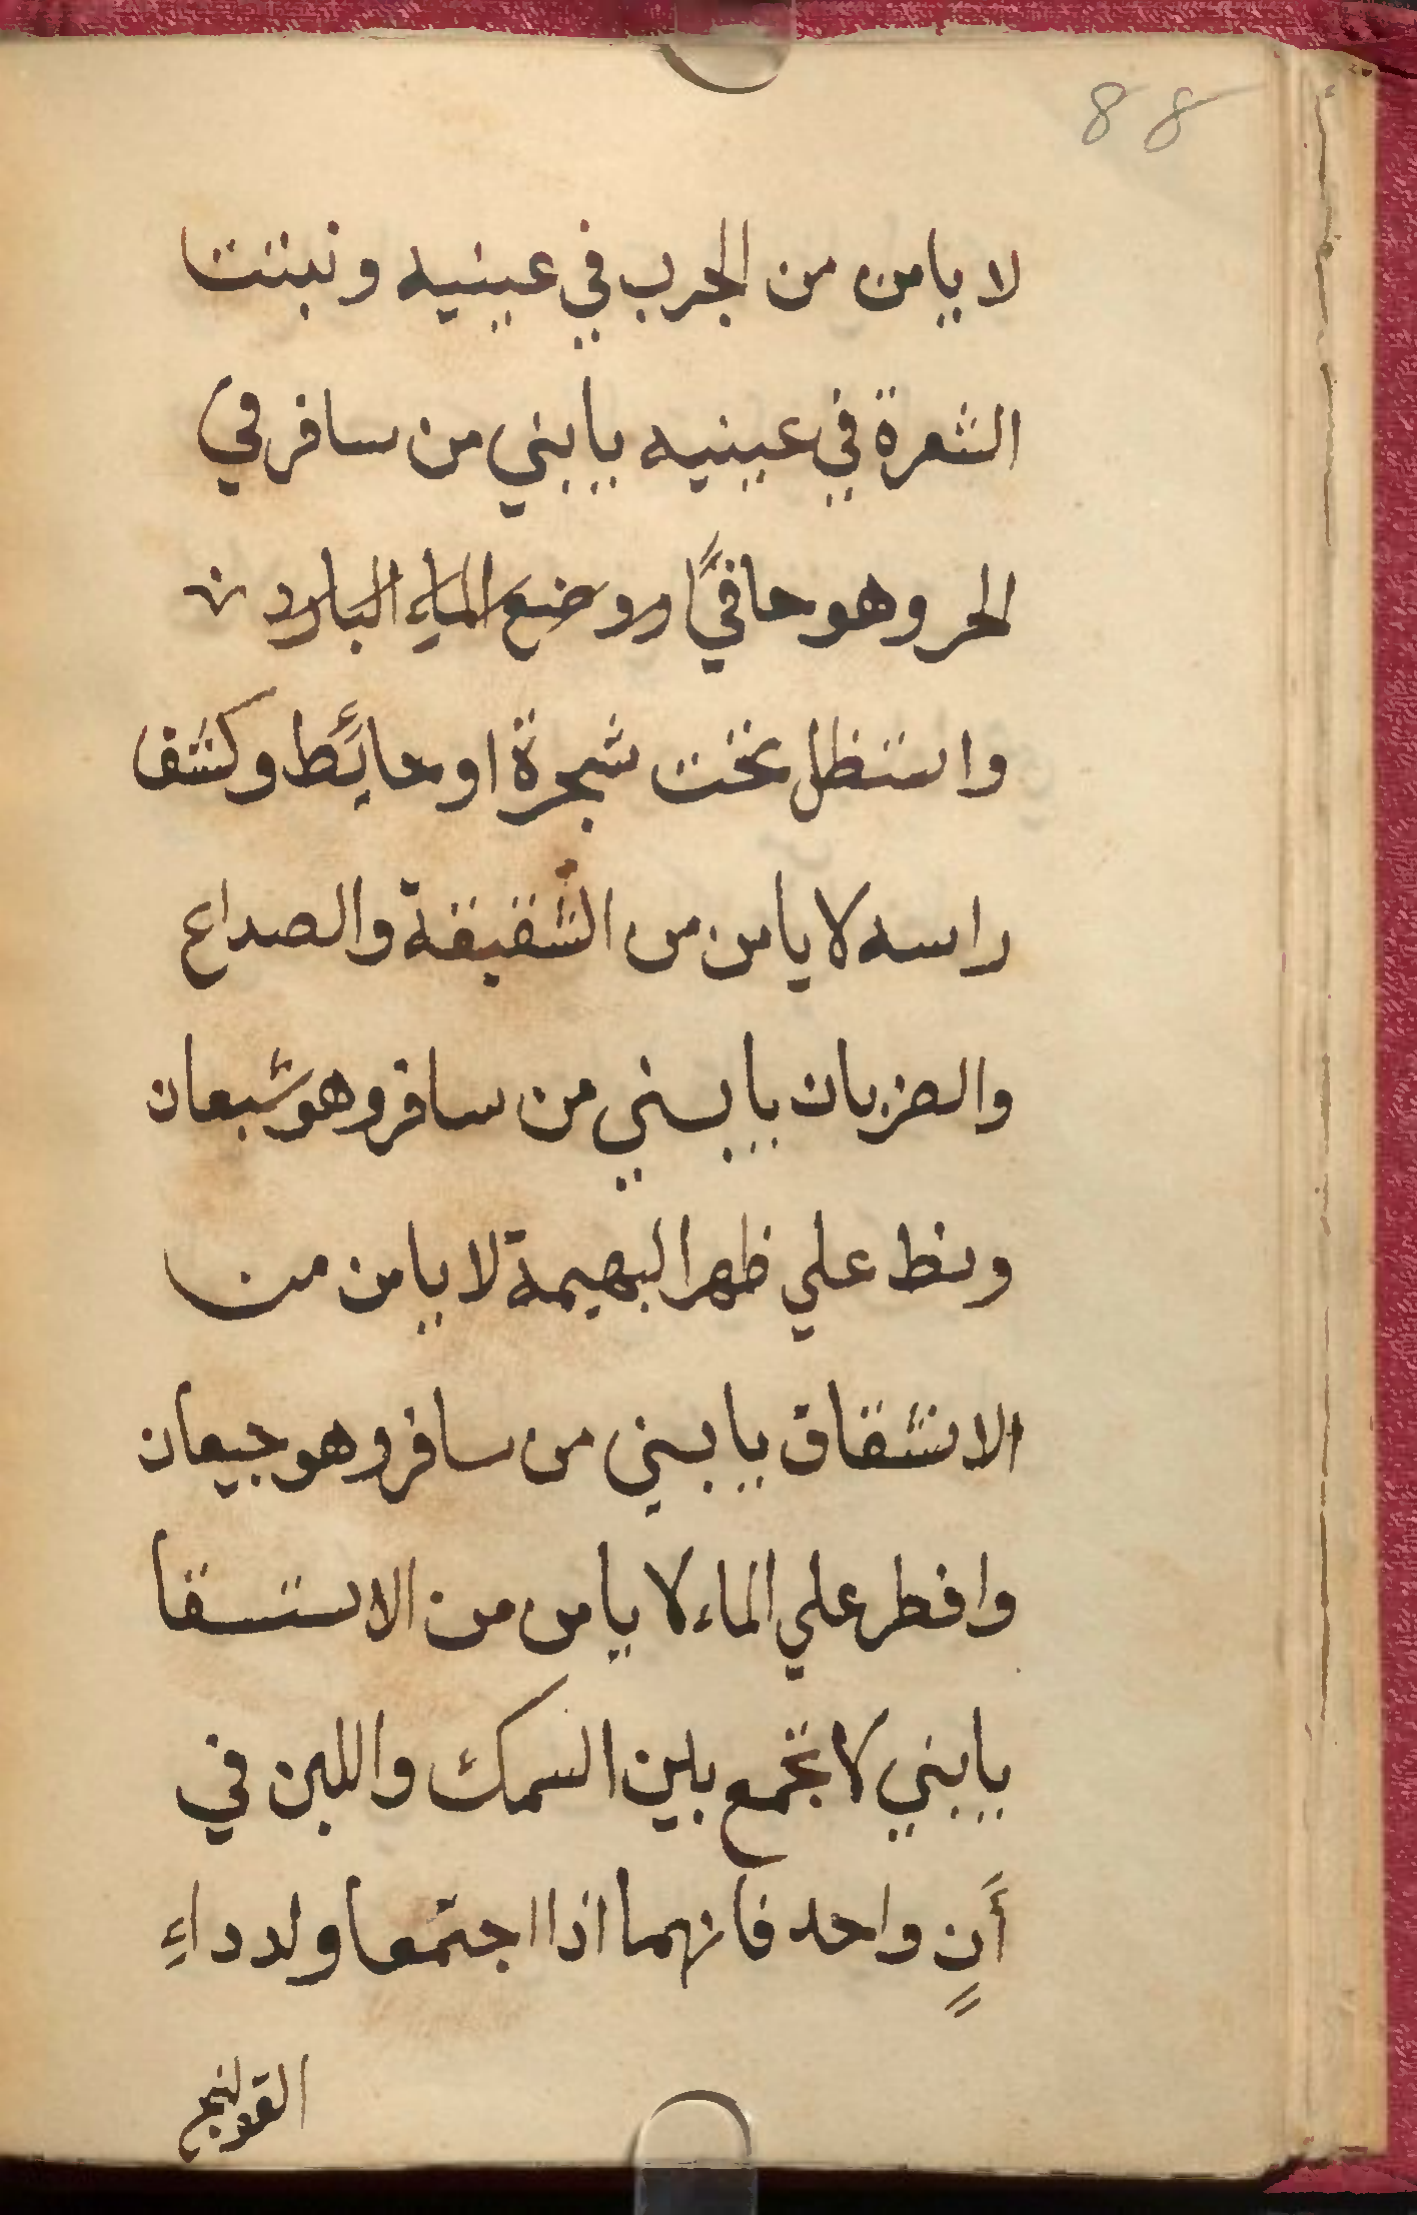 88
لا يامن من الجرب في عينيه ونبتت
الشعرة في عينيه يا بني من سافر في
الحر وهو حافيًا ووضع الماءِ البارد
واستظل تحت شجرة او حائَط وكشف
راسه لا يامن من الشقيقة والصداع
والضربان يا بني من سافر وهو شبعان
ونط علي ظهر البهيمة لا يامن من
الانشقاق يا بني من سافر وهو جيعان
وافطر علي الماء لا يامن من الاستسقا
يا بني لا تجمع بين السمك واللبن في
أَنٍ واحد فانهما اذا اجتمعا ولد داءِ
القولنج